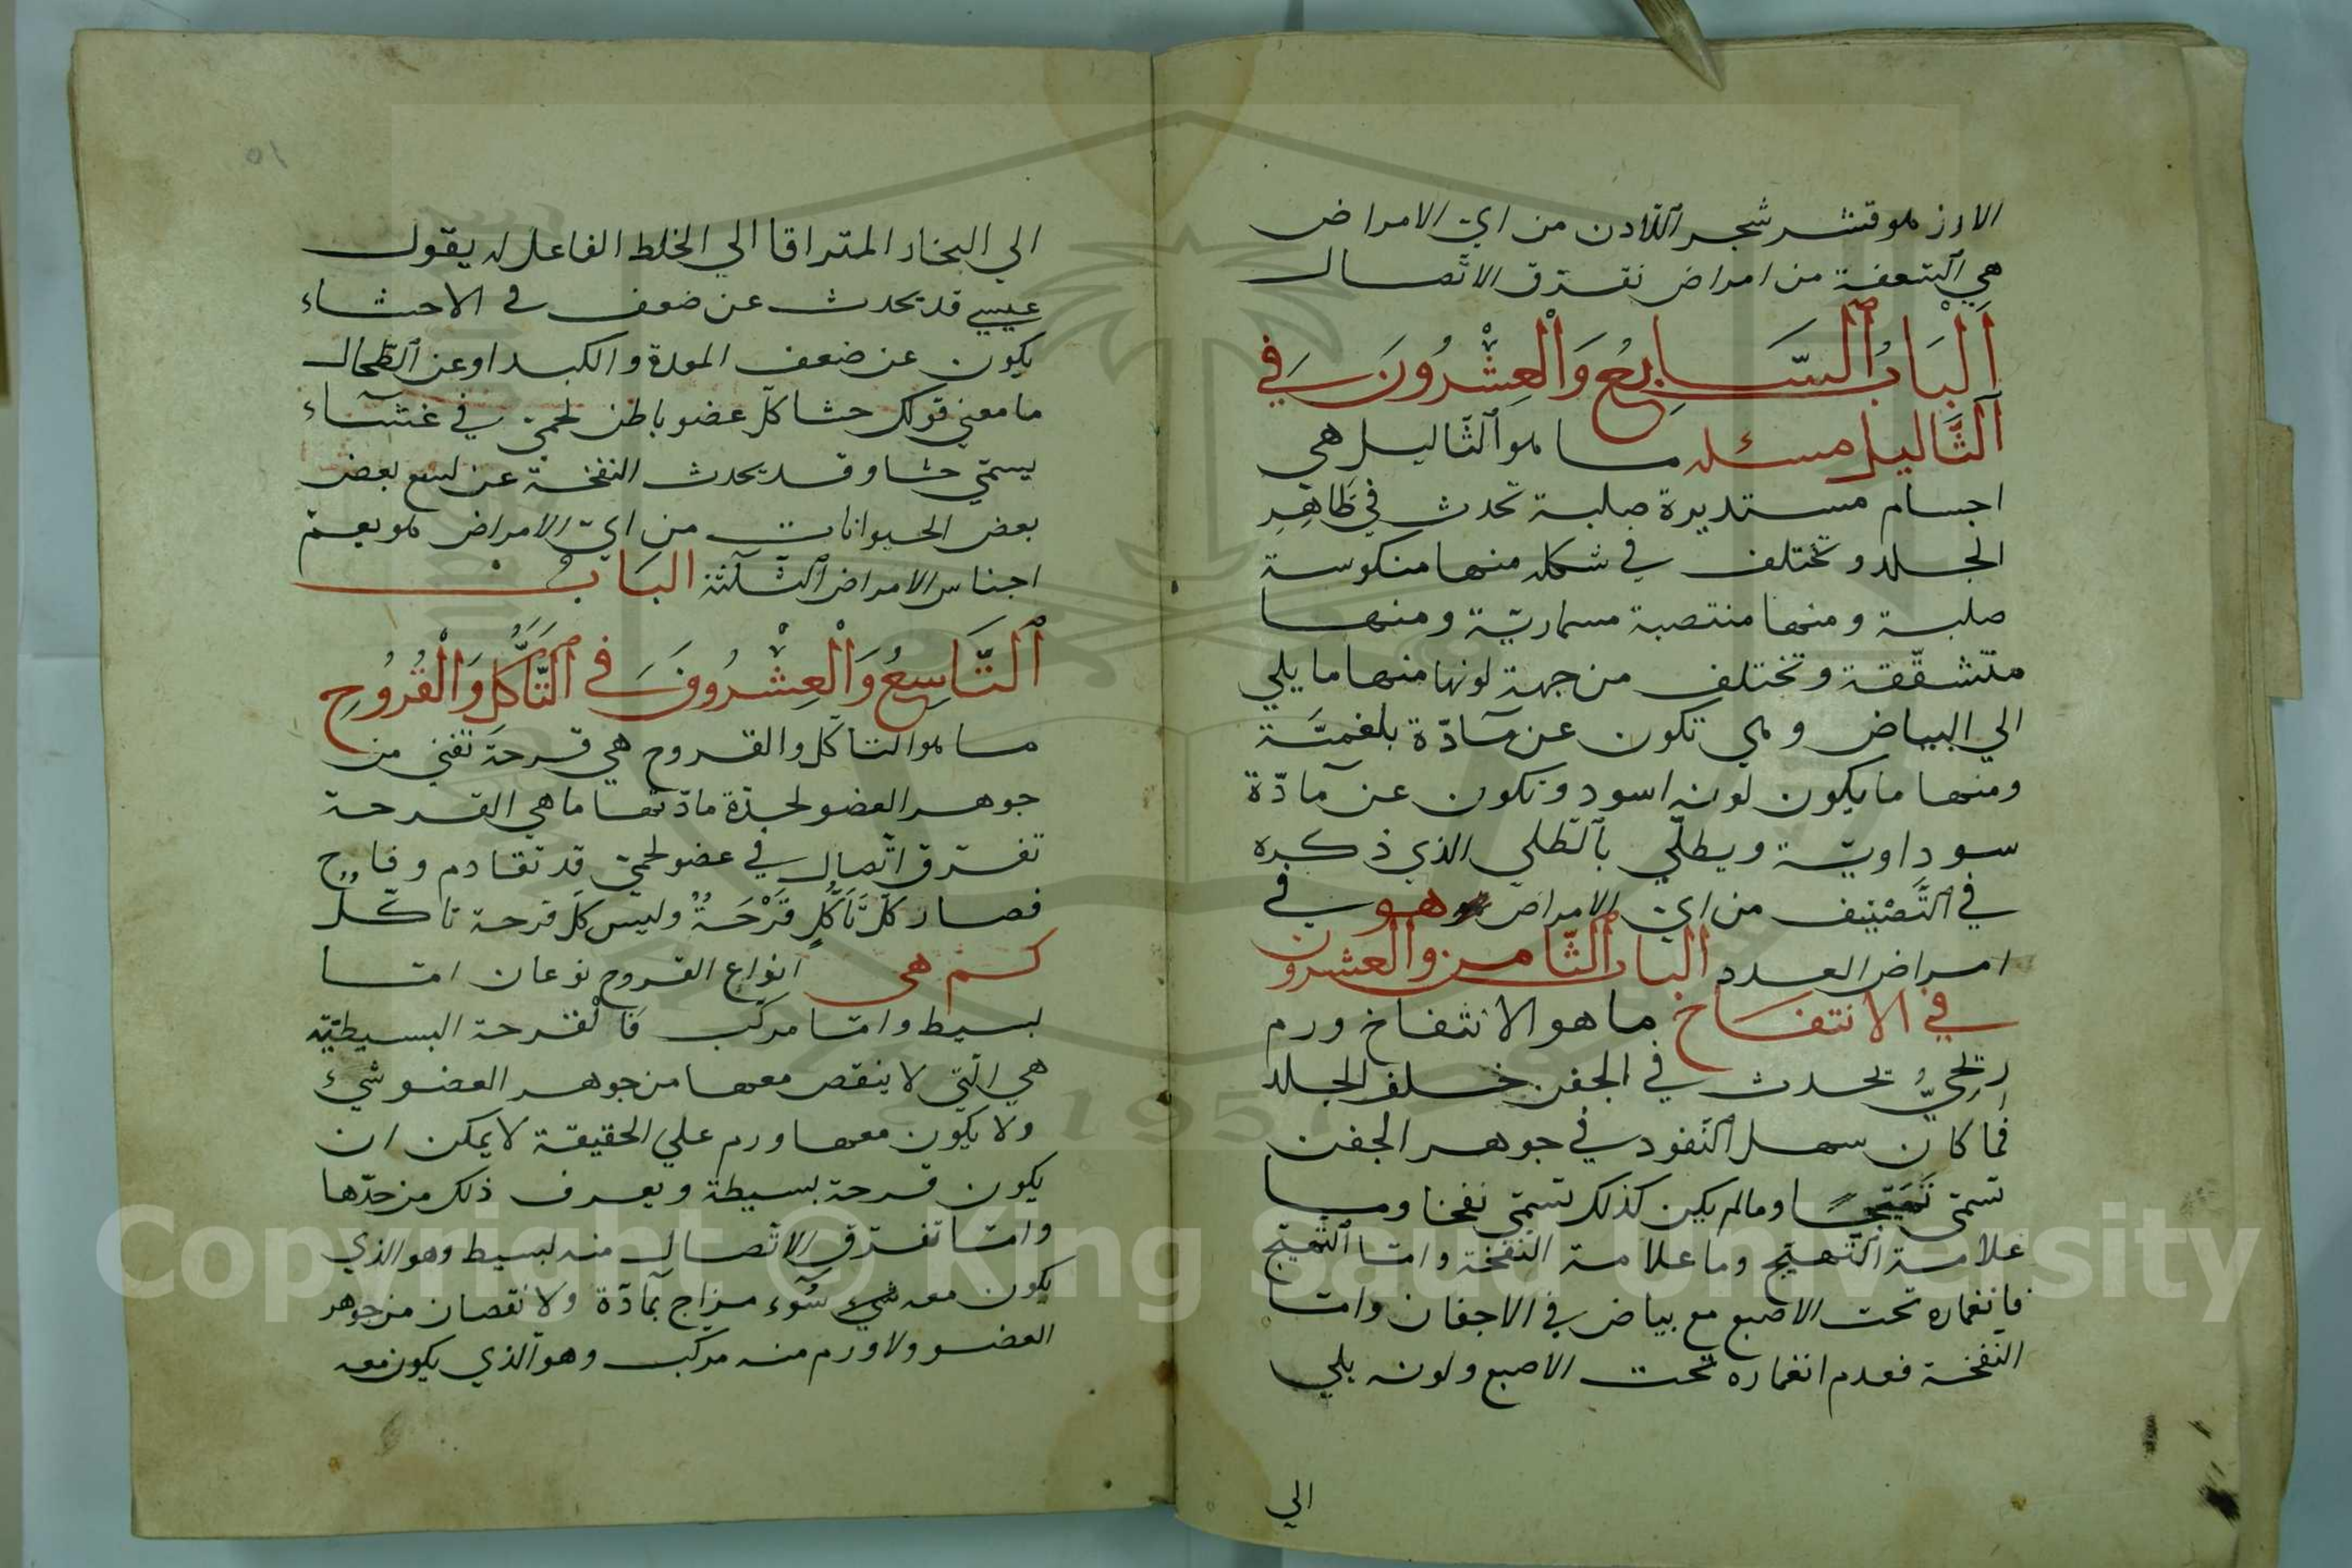 الارز هو قشر شجر اللّادن من ايّ الامراض
هي السعفة من امراض تفرّق الاتّصال
اَلْبَابُ السَّابِعُ وَالْعِشْرُونَ فِي
الثَّاليل مسئله ما هو الثّاليل هي
اجسام مستديرة صلبة تحدث في ظَاهِرِ
الجلد وتختلف في شكله منها منكوسة
صلبة ومنها منتصبة مسماريّة ومنها
متشقّقة وتختلف من جهة لونها منها ما يلي
الي البياض وهي تكون عن مآدّة بلغميّة
ومنها ما يكون لونه اسود وتكون عن مآدّة
سوداويّة ويطلّي بالطّلي الذي ذكره
في التَّصْنِيف من ايّ الامراض هو في
امراض العدد الباب الثّامن والعشرون
في الانتفاخ ما هو الانتفاخ ورم
ريحيُّ يحدث في الجفن خلف الجلد
فما كان سهل النّفود في جوهر الجفن
تسمّي تهيّجًا وما لم يكن كذلك تسمّي نفخا وما
علامة التّهيّج وما علامة النّفخة وامّا التّهيّج
فانغماره تحت الاصبع مع بياض في الاجفان وامّا
النّفخة فعدم انغماره تحت الاصبع ولونه يلي
الي
٥١
الي البخار المتراقا الي الخلط الفاعل له يقول
عيسي قد يحدث عن ضعف في الاحشاء
يكون عن ضعف المعدة والكبد او عن الطّحال
ما معني قولك حشا كلّ عضو باطن لحميّ في غشآء
يسمّي حشا وقد يحدث النفخة عن لسع بعض
بعض الحيوانات من ايّ الامراض هو يعمّ
اجناس الامراض الثّلثة البَابُ
اَلتَّاسِعُ وَالْعِشْرُونَ فِي التَّأَكُّلِ وَالْقُرُوحِ
ما هو التاكّل والقروح هي قرحة تفني من
جوهر العضو لحدّة مادّتها ما هي القرحة
تفرّق اتّصال في عضو لحميّ قد تقادم وقاح
فصار كلّ تَأَكُّلٍ قَرْحَةٌ وليس كلّ قرحة تاكّل
كم هي انواع القروح نوعان امّا
بسيط وامّا مركّب فالْقرحة البسيطيّة
هي الّتي لا ينقص معها من جوهر العضو شيء
ولا يكون معها ورم علي الحقيقة لا يمكن ان
يكون قرحة بسيطة ويعرف ذلك من حدّها
وامّا تفرّق الاتّصال منه بسيط وهو الذي
يكون معه شيء سُوء مزاج بمآدّة ولا نقصان من جوهر
العضو ولا ورم منه مركّب وهو الّذي يكون معه
Copyright © King Saud University
1957